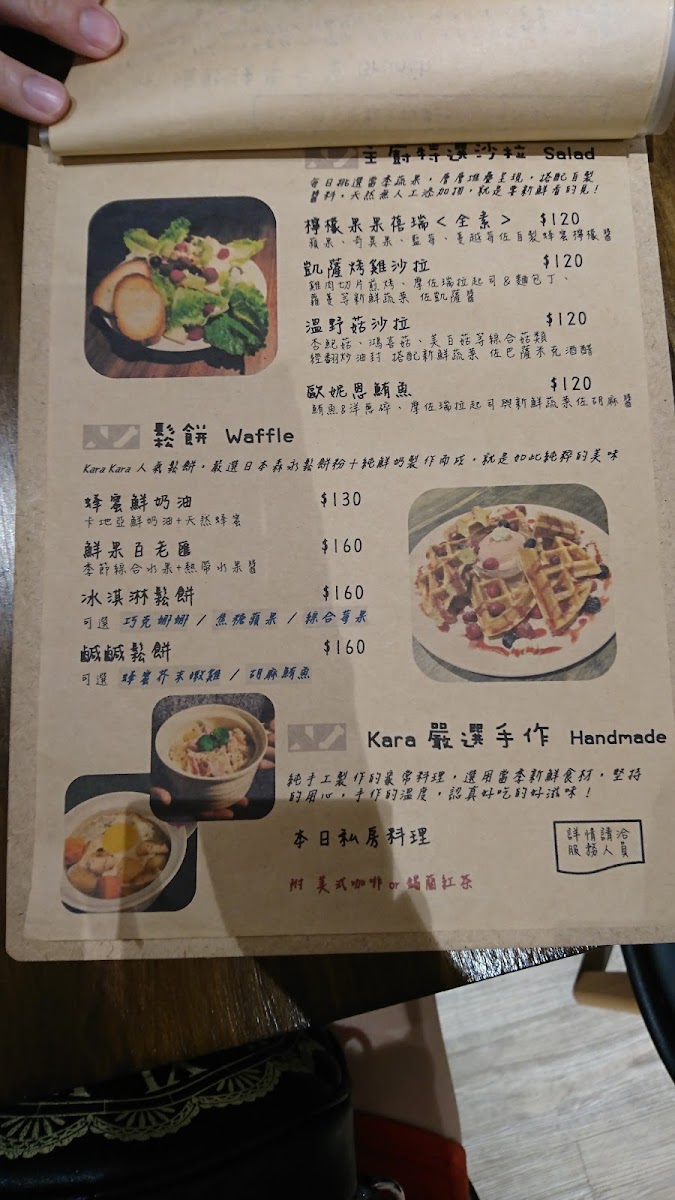 主廚特選沙拉 Salad
每日挑選當季蔬果，層層堆疊呈現，搭配自製
醬料，天然無人工添加物，就是要新鮮看的見！
檸檬果果蓓瑞＜全素＞ $120
蘋果、奇異果、藍莓、蔓越莓佐自製蜂蜜檸檬醬
凱薩烤雞沙拉 $120
雞肉切片煎烤、摩佐瑞拉起司&麵包丁、
蘿蔓等新鮮蔬菜 佐凱薩醬
溫野菇沙拉 $120
杏鮑菇、鴻喜菇、美白菇等綜合菇類
經翻炒油封 搭配新鮮蔬菜 佐巴薩米克酒醋
歐妮恩鮪魚 $120
鮪魚&洋蔥碎、摩佐瑞拉起司與新鮮蔬菜佐胡麻醬
鬆餅 Waffle
Kara Kara 人氣鬆餅，嚴選日本森永鬆餅粉＋純鮮奶製作而成，就是如此純粹的美味
蜂蜜鮮奶油 $130
卡地亞鮮奶油+天然蜂蜜
鮮果百老匯 $160
季節綜合水果+熱帶水果醬
冰淇淋鬆餅 $160
可選 巧克娜娜 / 焦糖蘋果 / 綜合莓果
鹹鹹鬆餅 $160
可選 蜂蜜芥末嫩雞 / 胡麻鮪魚
Kara 嚴選手作 Handmade
純手工製作的家常料理，選用當季新鮮食材，堅持
的用心，手作的溫度，認真好吃的好滋味！
本日私房料理
詳情請洽
服務人員
附 美式咖啡 or 錫蘭紅茶